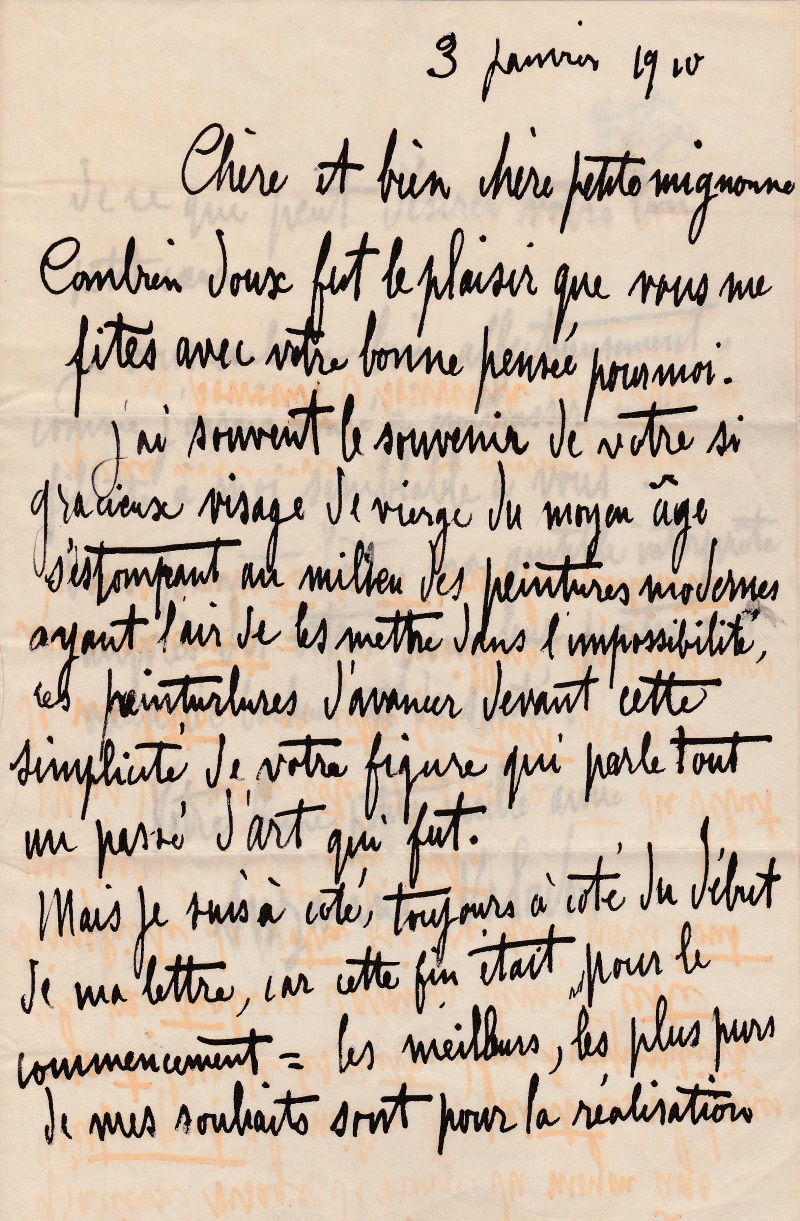 3 janvier 1910
Chère et bien chère petite mignonne
Combien doux fut le plaisir que vous me
fites avec votre bonne pensée pour moi.
j'ai souvent le souvenir de votre si
gracieux visage de vierge du moyen âge
s'estompant au milieu des peintures modernes
ayant l'air de les mettre dans l'impossibilité,
ces peinturlures d'avancer devant cette
simplicité de votre figure qui parle tout
un passé d'art qui fut.
Mais je suis à coté, toujours à coté du début
de ma lettre, car cette fin était pour le
commencement = les meilleurs, les plus purs
de mes souhaits sont pour la réalisation